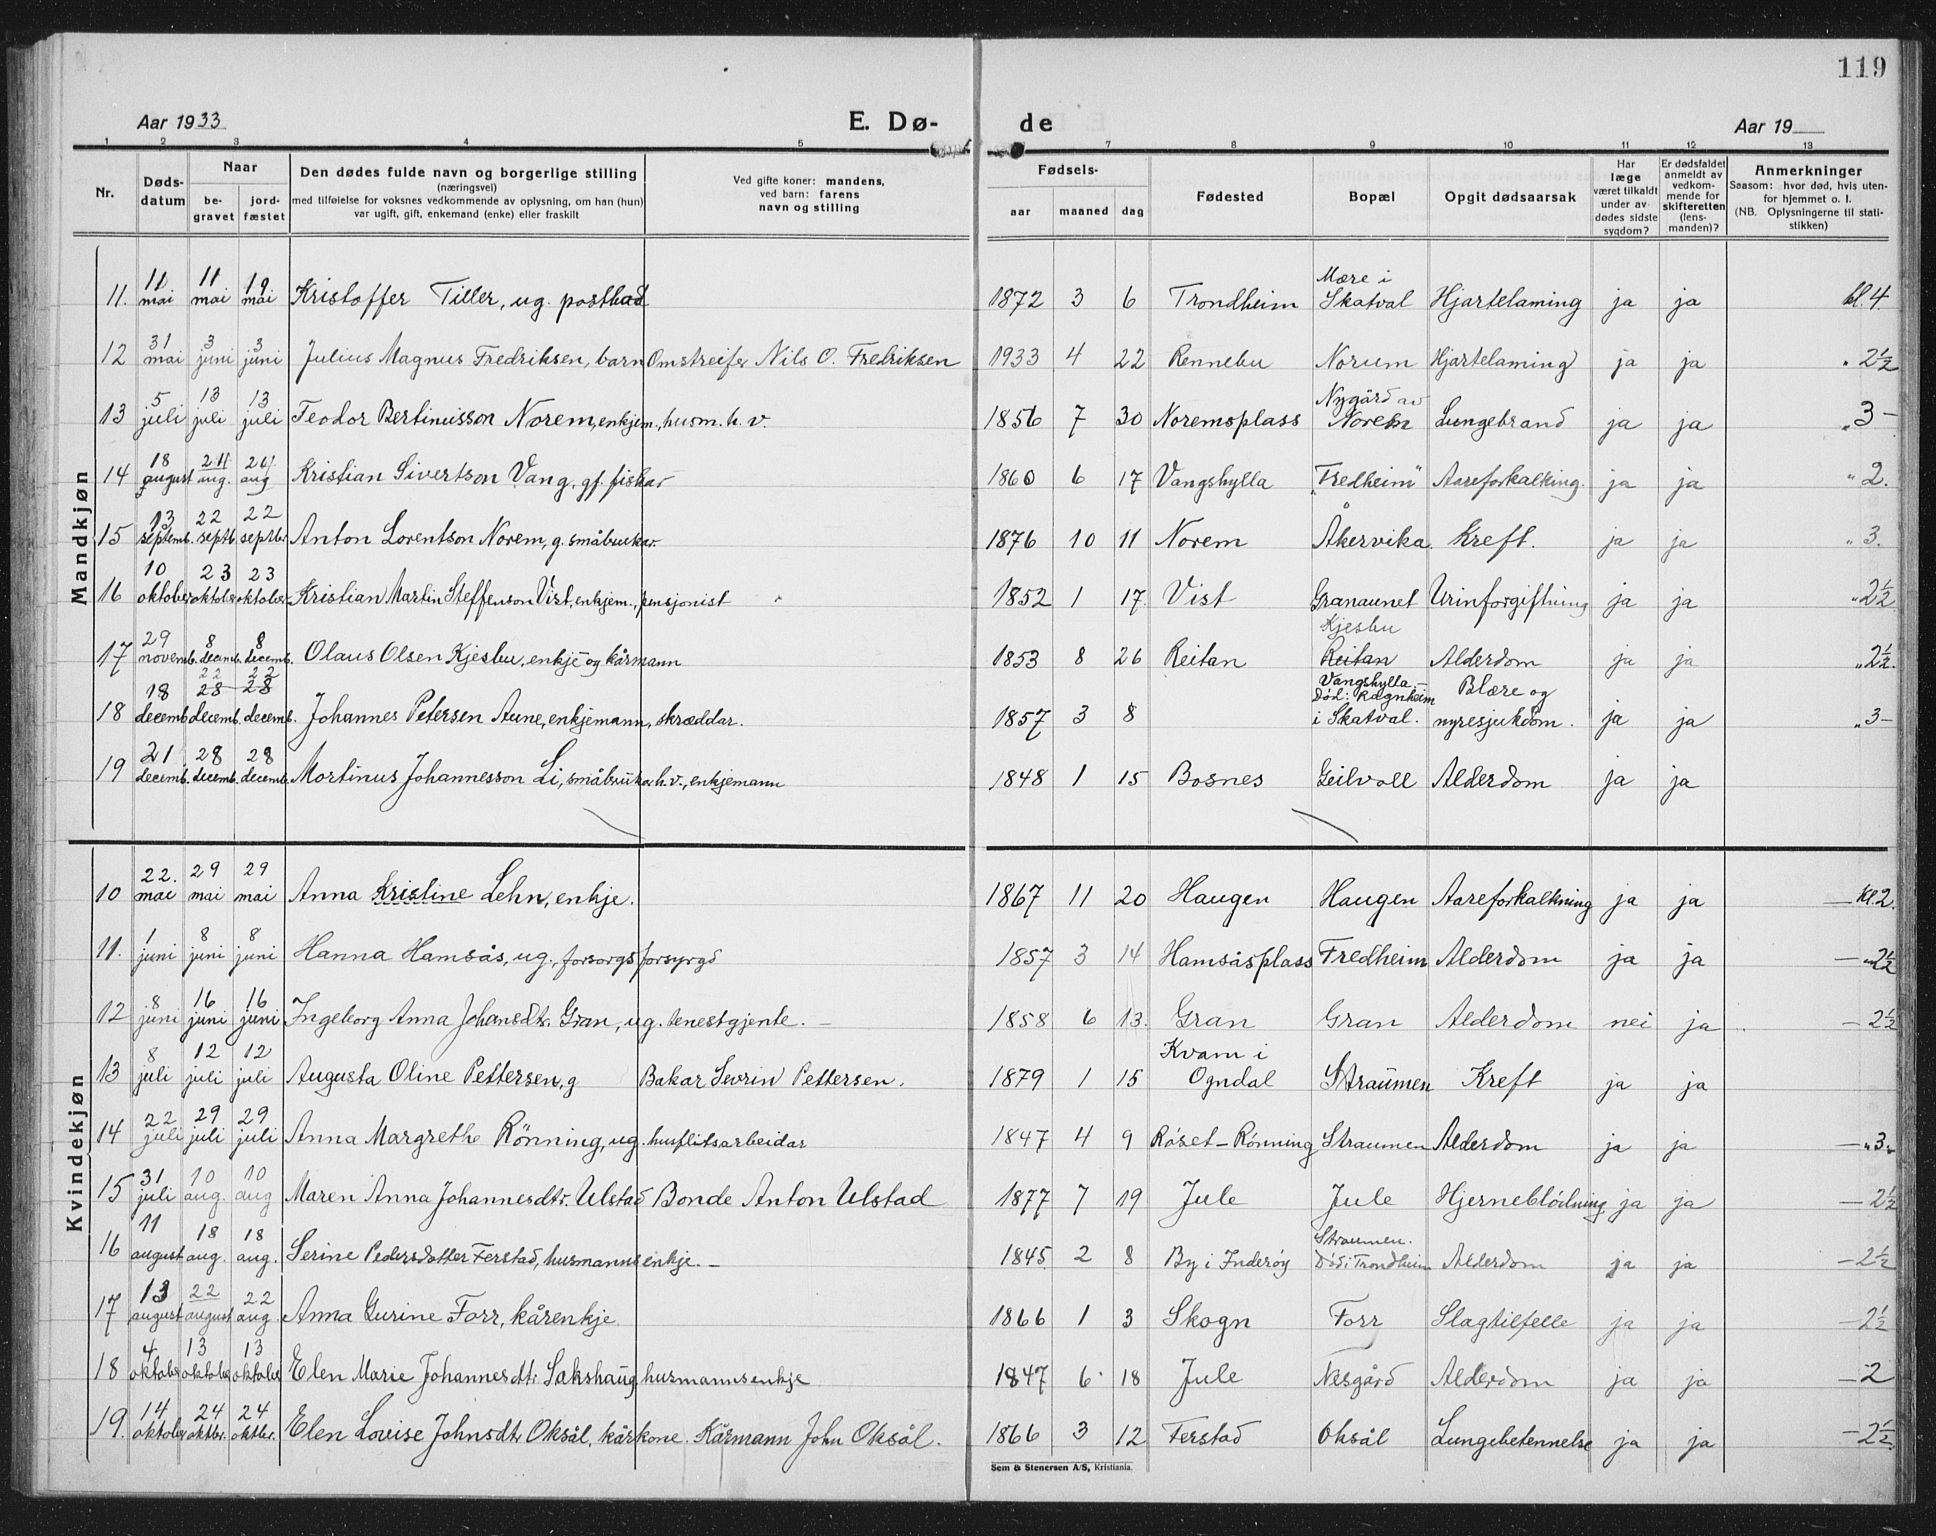 119
Aar 1933
E. Dø-
de
Aar 19
1 2 3 4 5 7 8 9 10 11 12 13
Nr.
Døds-
datum
Naar
be-
gravet
jord-
fæstet
Den dødes fulde navn og borgerlige stilling
(næringsvei)
med tilføielse for voksnes vedkommende av oplysning, om han (hun)
var ugift, gift, enkemand (enke) eller fraskilt
Ved gifte koner: mandens,
ved barn: farens
navn og stilling
Fødsels-
aar maaned dag
Fødested
Bopæl
Opgit dødsaarsak
Har
læge
været tilkaldt
under av-
dødes sidste
sygdom?
Er dødsfaldet
anmeldt av
vedkom-
mende for
skifteretten
(lens-
manden)?
Anmerkninger
Saasom: hvor død, hvis uten-
for hjemmet o. l.
(NB. Oplysningerne til stati-
stikken)
Mandkjøn
11. 11 mai 11 mai 19 mai Kristoffer Tiller, ug. postbud 1872 3 6 Trondheim Mære i Skatval Hjartelaming ja ja kl. 4.
12 31 mai 3 juni 3 juni Julius Magnus Fredriksen, barn Omstreifer Nils O. Fredriksen 1933 4 22 Rennebu Norum Hjartelaming ja ja " 2½
13 5 juli 13 juli 13 juli Teodor Bertinusson Norem, enkjem., husm. h. v. 1856 7 30 Noremsplass Nygård av Norem Lungebrand ja ja " 3 -
14 18 august 21 aug. 21 aug Kristian Sivertson Vang, gf. fiskar 1860 6 17 Vangshylla "Fredheim" Aareforkalking. ja ja " 2.
15 13 septemb. 22 septb. 22 septbr. Anton Lorentson Norem, g. småbrukar. 1876 10 11 Norem Åkervika. Kreft. ja ja " 3.
16 10 oktober 23 oktober 23 oktober Kristian Martin Steffenson Vist, enkjem., pensjonist " 1852 1 17. Vist Granaunet Urinforgiftning ja ja " 2½
17 29 novemb. 8 decemb. 8 decemb. Olaus Olsen Kjesbu, enkje- og kårmann 1853 8 26 Reitan Kjesbu Reitan Alderdom ja ja " 2½.
18 18 decemb. 22 28 decemb. 22 28 decemb. Johannes Petersen Aune, enkjemann, skræddar. 1857 3 8 Vangshylla - Død: Ragnheim i Skatval. Blære og nyresjukdom. ja ja " 3 -
19 21 decemb. 28 decemb. 28 decemb. Mortinus Johannesson Li, småbrukar h. v., enkjemann 1848 1 15 Bosnes Geilvoll Alderdom ja ja
Kvindekjøn
10 22. mai 29 mai 29 mai Anna Kristine Lehn, enkje. 1867 11 20 Haugen Haugen Aareforkalkning ja ja — Kl. 2.
11. 1 juni 8 juni 8 juni Hanna Hamsås, ug., forsorgsforsyrgd 1857 3 14 Hamsåsplass Fredheim Alderdom ja ja — " 2½
12 8 juni 16 juni 16 juni Ingeborg Anna Johansdtr. Gran, ug. tenestgjente. — 1858 6 13. Gran Gran Alderdom nei ja — 2½
13 8 juli 12 juli 12 juli Augusta Oline Pettersen, g Bakar Sevrin Pettersen. 1879 1 15 Kvam i Ogndal Straumen Kreft ja ja
14 22 juli 29 juli 29 juli Anna Margrethe Rönning, ug. husflitsarbeidar 1847 4 9 Røset - Rønning Straumen Alderdom ja ja — " 3 "
15 31 juli 10 aug. 10 aug Maren Anna Johannesdtr. Ulstad Bonde Anton Ulstad 1877 7 19 Jule Jule Hjerneblödning ja ja — 2½
16 11 august 18 aug. 18 aug. Serine Pedersdatter Ferstad, husmannsenkje. — 1845 2 8 By i Inderøy Straumen. Död i Trondheim Alderdom ja ja — 2½
17 13 august 22 august 22 aug. Anna Gurine Forr, kårenkje 1866 1 3 Skogn Forr Slagtilfelle ja ja — 2½
18 4 oktober 13 oktober 13 oktober Elen Marie Johannesdtr. Sakshaug husmannsenkje 1847 6 18 Jule Nesgård Alderdom ja ja — 2
19. 14 oktober 24 oktbr. 24 oktbr. Elen Lovise Johnsdtr Oksål, kårkone. Kårmann John Oksål. 1866 3 12 Ferstad Oksål Lungebetennelse ja ja — 2½.
Sem & Stenersen A/S, Kristiania.